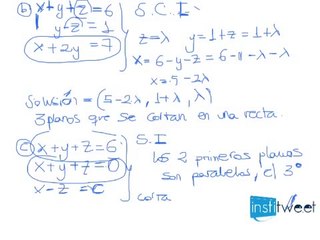 b) x+y+z=6
y-z=1
x+2y=7
S.C.I
z=λ y=1+z=1+λ
x=6-y-z=6-1-λ-λ
x=5-2λ
Solución=(5-2λ, 1+λ, λ)
3 planos que se cortan en una recta.
c) x+y+z=6
x+y+z=0
x-z=0
S.I
los 2 primeros planos
son paralelos, el 3º
corta
instítweet